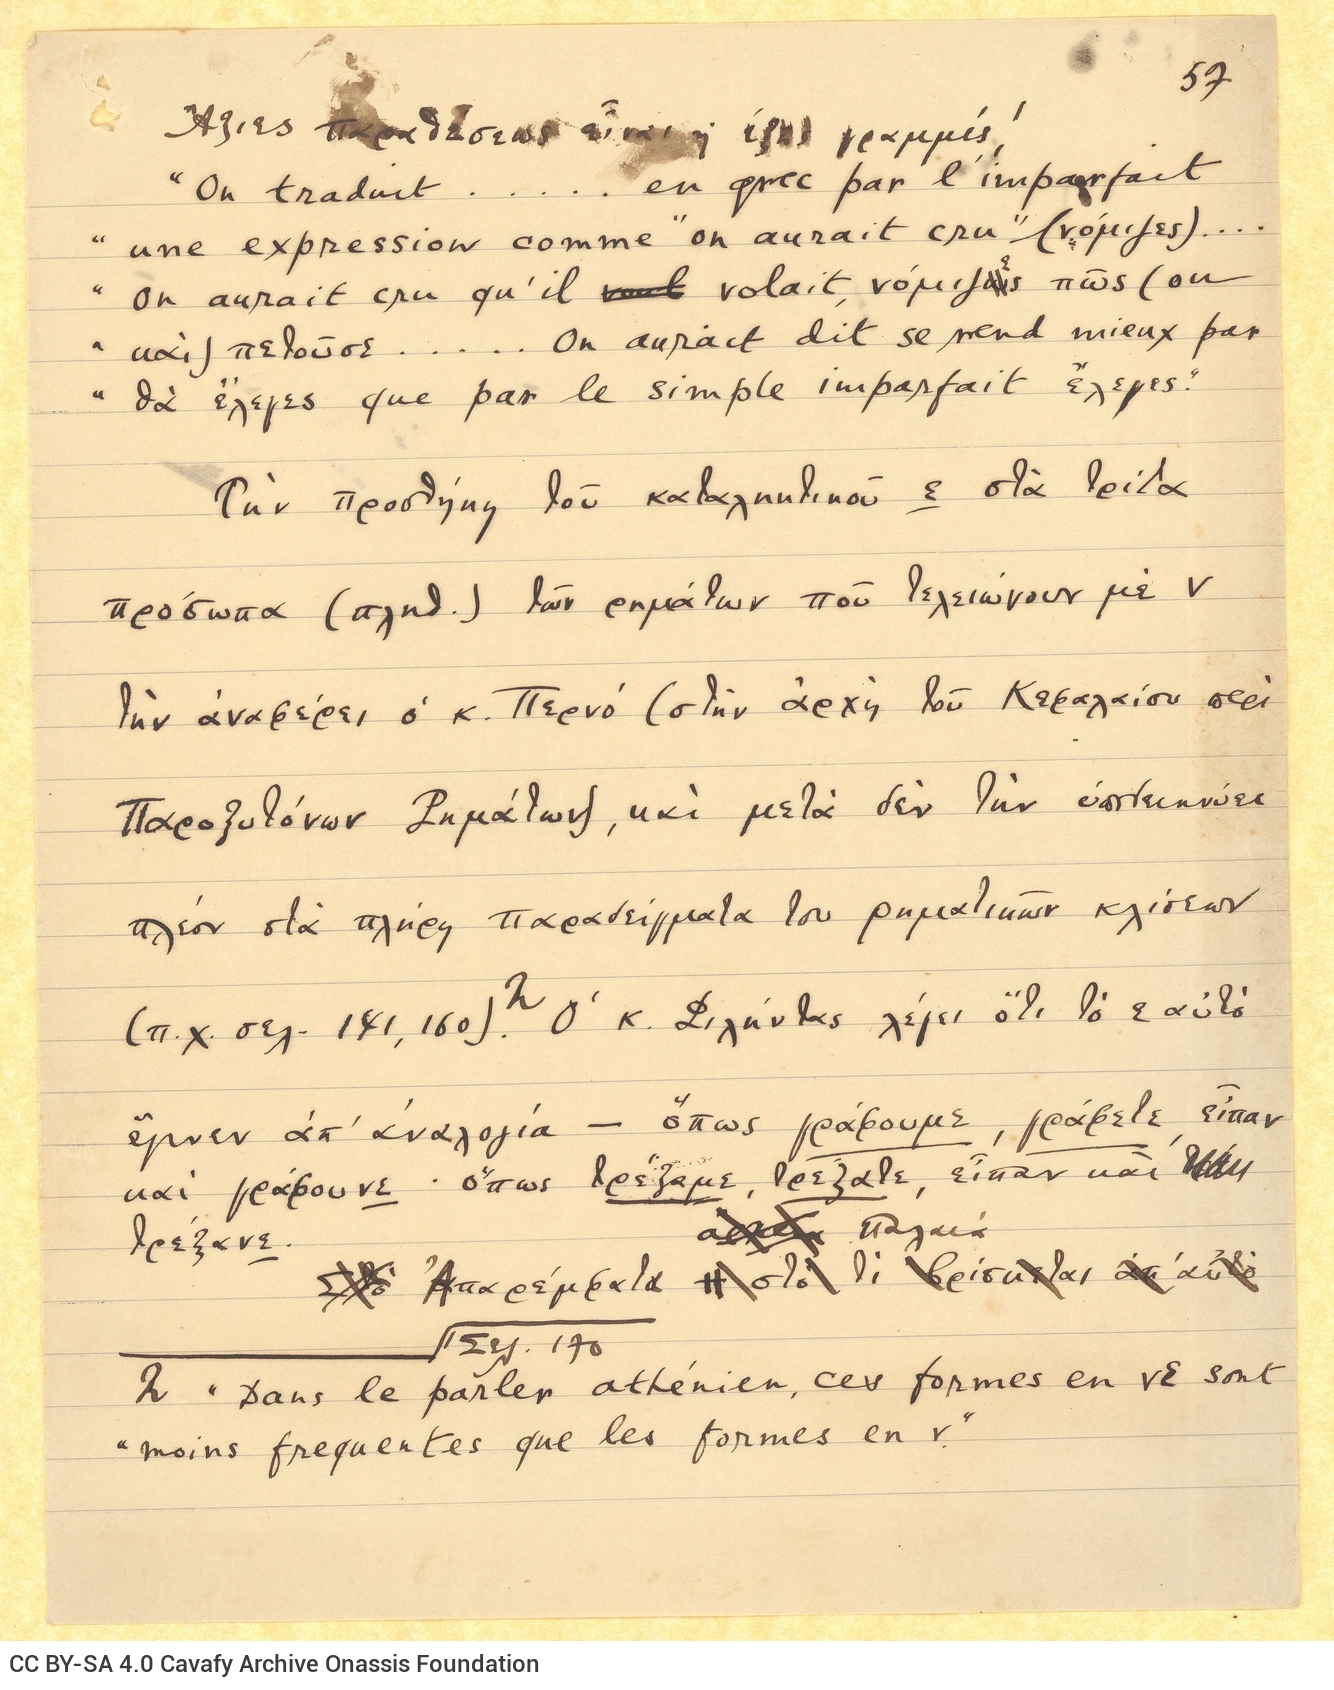 57
Ἄξιες παραθέσεως εἶναι ἡ ἑξῆς γραμμές!
“On traduit . . . . . . en grec par l'imparfait
“ une expression comme “on aurait cru” (νόμιζες)....
“ On aurait cru qu'il volait, νόμιζες πῶς (ou
“ καὶ) πετοῦσε . . . . . . On aurait dit se rend mieux par
“ θὰ ἔλεγες que par le simple imparfait ἔλεγες.”
Τὴν προσθήκη τοῦ καταληκτικοῦ ε στὰ τρίτα
πρόσωπα (πληθ.) τῶν ρημάτων ποῦ τελειώνουν μὲ ν
τὴν ἀναφέρει ὁ κ. Περνό (στὴν ἀρχὴ τοῦ Κεφαλαίου περὶ
Παροξυτόνων Ρημάτων), καὶ μετὰ δὲν τὴν ὑποδεικνύει
πλέον στὰ πλήρη παραδείγματα του ρηματικῶν κλίσεων
(π.χ. σελ. 141, 160).λ Ὁ κ. Φιλήντας λέγει ὅτι τὸ ε αὐτὸ
ἔγινεν ἀπ' ἀναλογία — ὅπως γράφουμε, γράφετε, εἶπαν
καὶ γράφουνε · ὅπως τρέξαμε, τρέξατε, εἶπαν καὶ
τρέξανε.
παλαιὰ
Ἀπαρέμφατα τί
Σελ. 170
λ “Dans le parler athénien, ces formes en νε sont
“moins frequentes que les formes en ν.”
CC BY-SA 4.0 Cavafy Archive Onassis Foundation